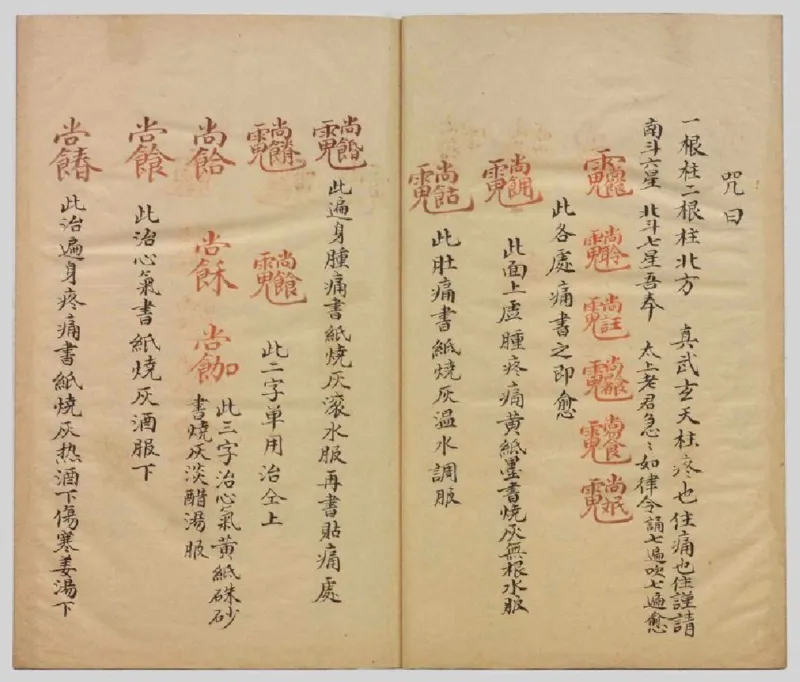 咒曰
一根柱二根柱北方　真武玄天柱疼也住痛也住謹請
南斗六星　北斗七星吾奉　太上老君急〻如律令誦七遍吹七遍愈
此各處痛書之即愈
此面上虛腫疼痛黃紙墨書燒灰無根水服
此肚痛書紙燒灰温水調服
此遍身腫痛書紙燒灰滚水服再書貼痛處
此二字单用治仝上
此三字治心氣黃紙硃砂
書燒灰淡醋湯服
此治心氣書紙燒灰酒服下
此治遍身疼痛書紙燒灰热酒下傷寒姜湯下